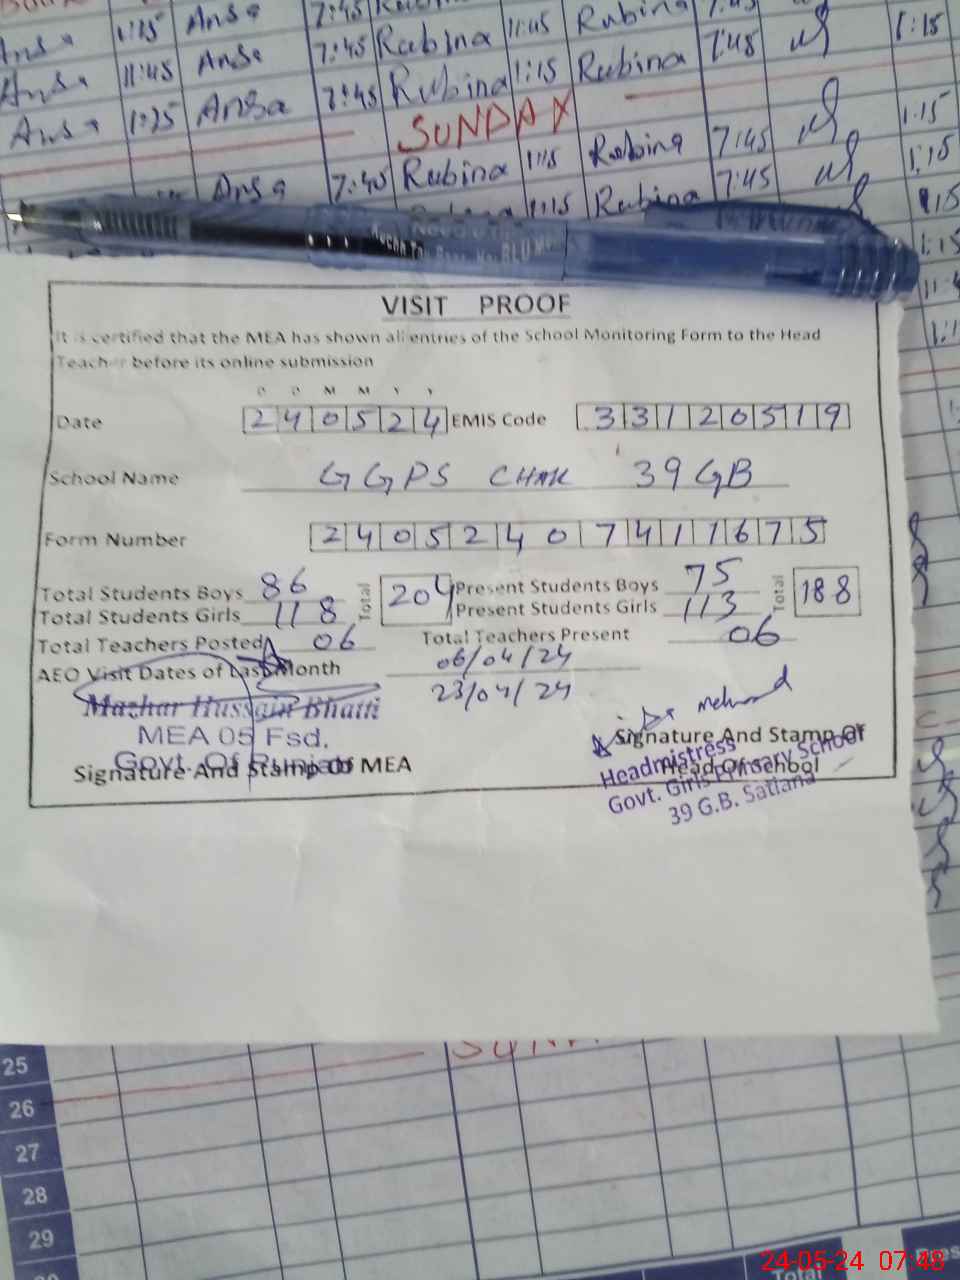 Ansa 1:15 Ansa 7:45
Ansa 11:45 Ansa 7:45 Rubina 11:45 Rubina 7:45 1:15
Ansa 1:25 Ansa 7:45 Rubina 1:15 Rubina 7:45
SUNDAY 1:15
Ansa 7:45 Rubina 1:15 Rubina 7:45 1:15
1:15 Rubina 7:45
VISIT PROOF
It is certified that the MEA has shown all entries of the School Monitoring Form to the Head
Teacher before its online submission
D D M M Y Y
Date 240524 EMIS Code 33120519
School Name GGPS CHAK 39 GB
Form Number 24052407411675
Total Students Boys 86 Total 204 Present Students Boys 75 Total 188
Total Students Girls 118 Present Students Girls 113
Total Teachers Posted 06 Total Teachers Present 06
AEO Visit Dates of Last Month 06/04/24
23/04/24
Mazhar Hussain Bhatti
MEA 05 Fsd.
Govt. Of Punjab
Signature And Stamp Of MEA
Signature And Stamp Of
Head Of School
Headmistress
Govt. Girls Primary School
39 G.B. Satiana
25
26
27
28
29
Total
24-05-24 07:48